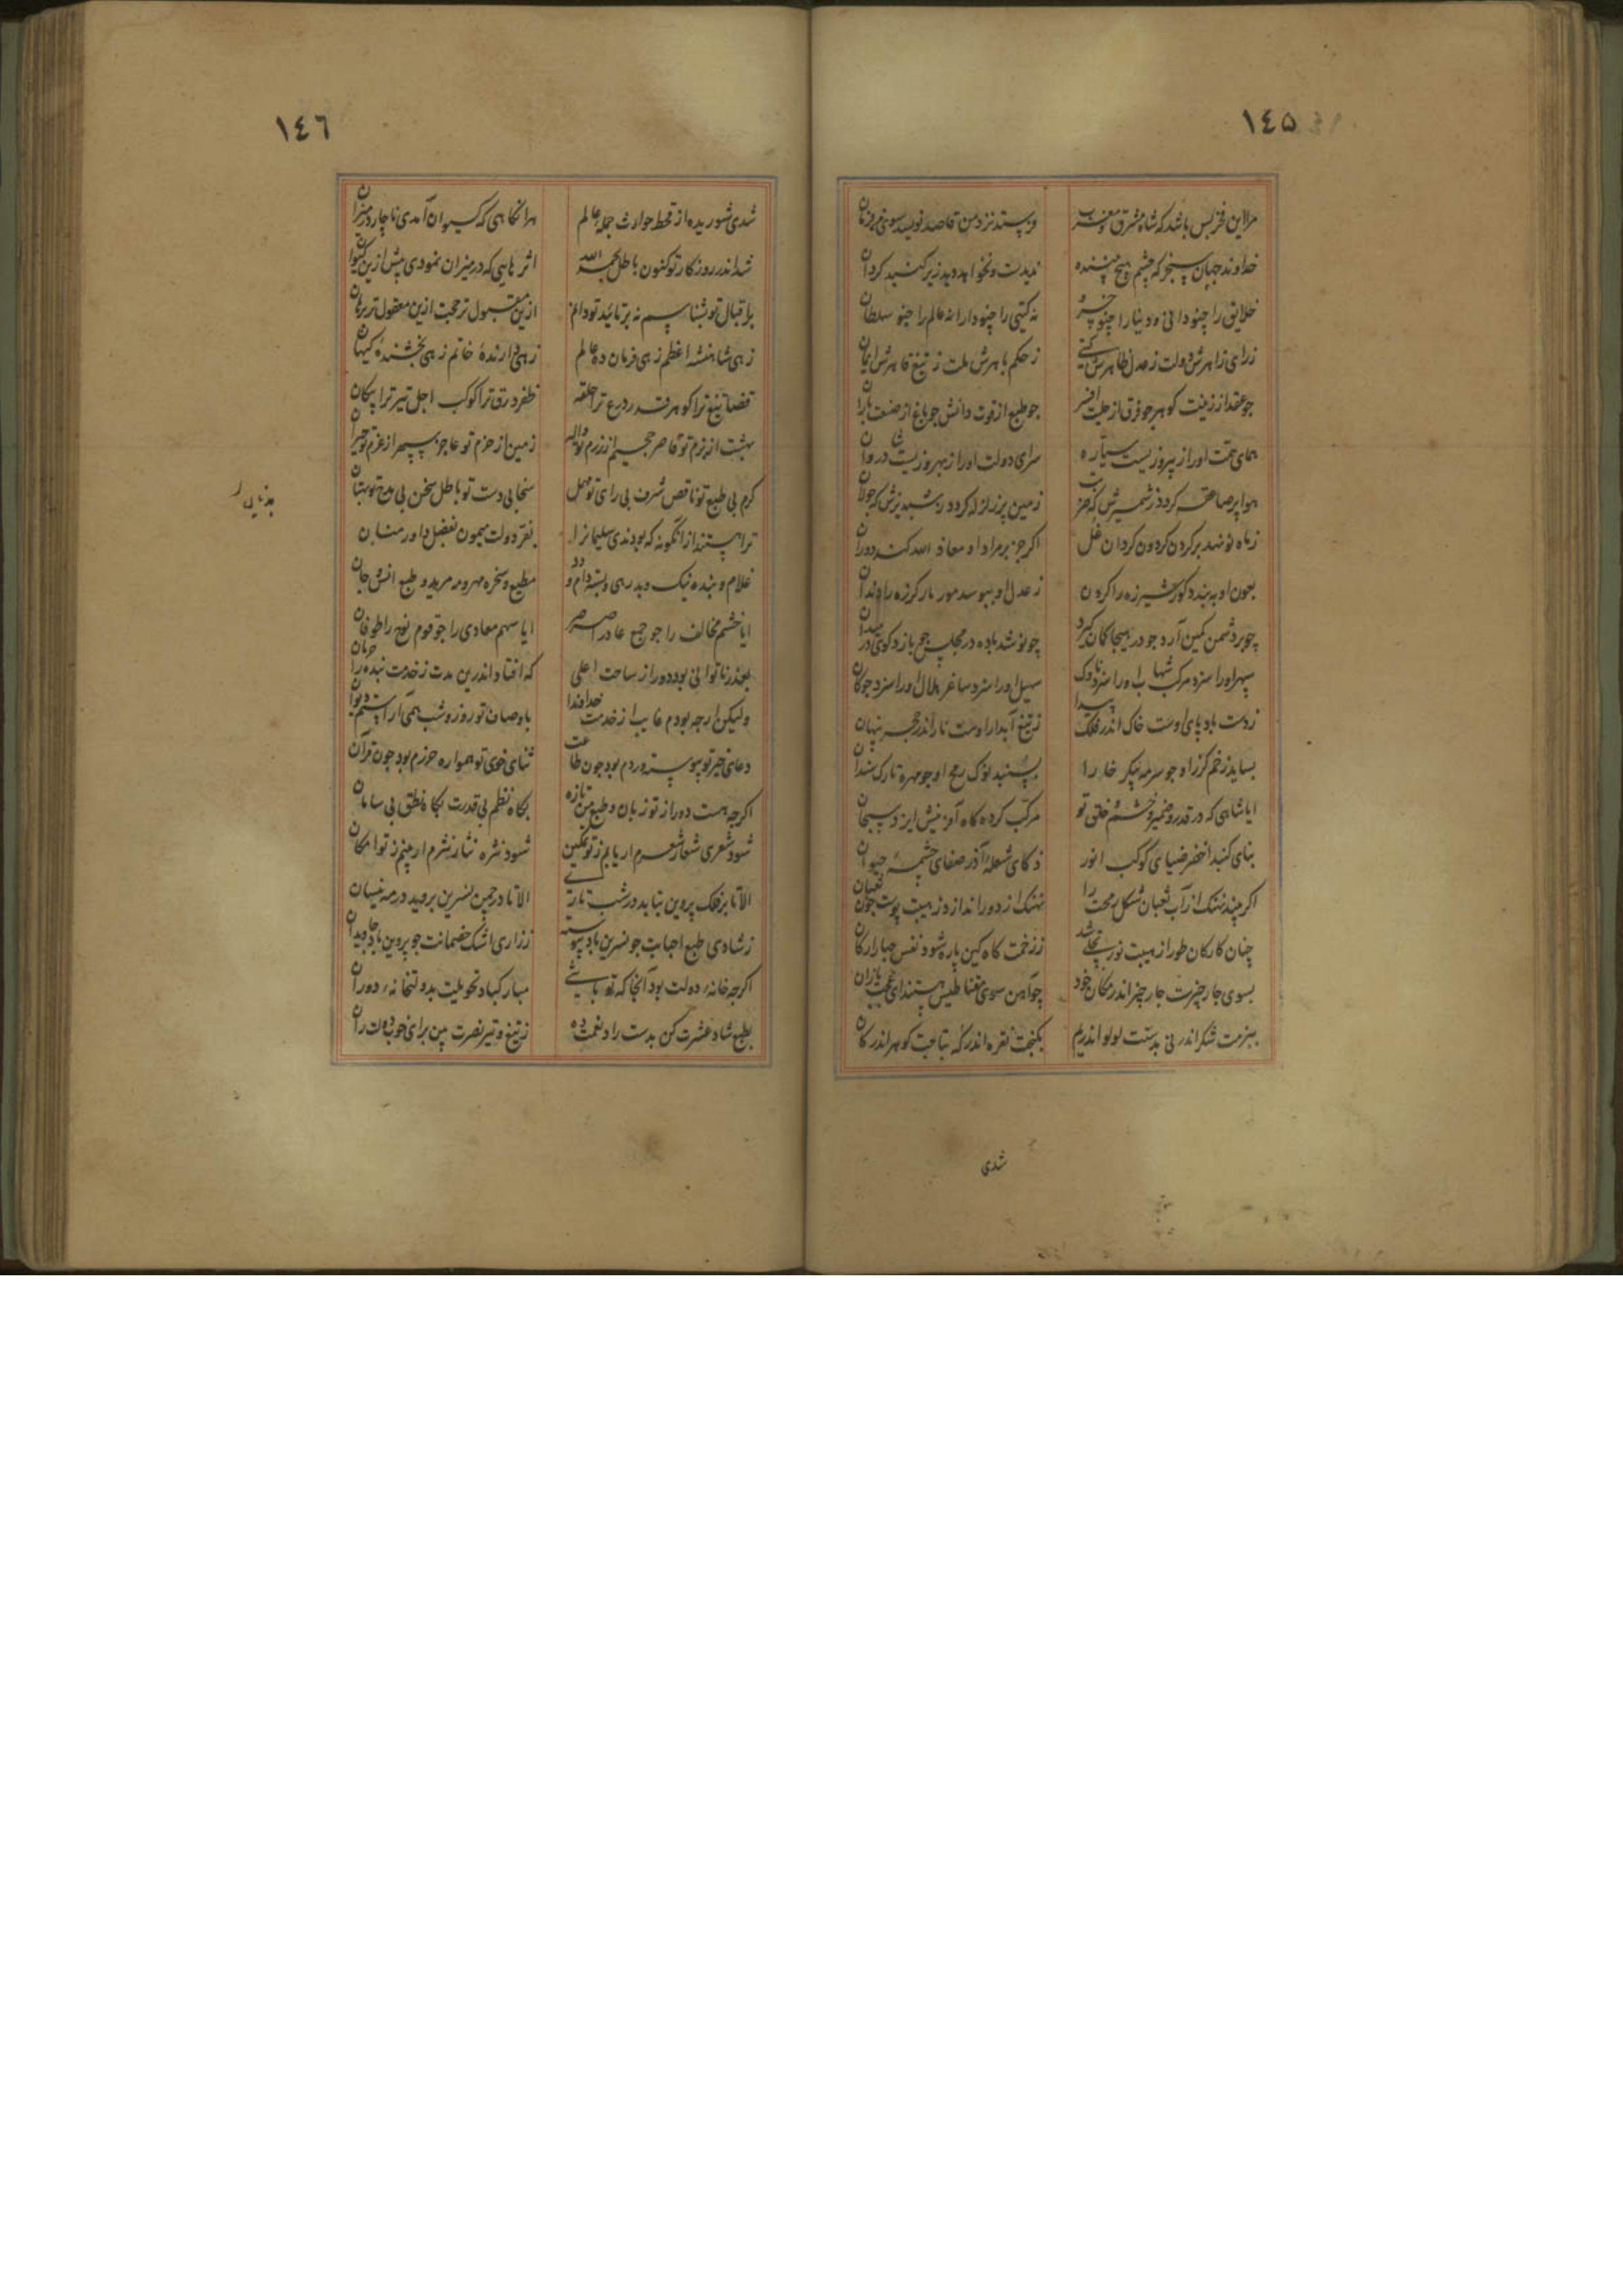 ١٤٥
مرا این فخر بس باشد که شاه مشرق و مغرب فرستد نزد من قاصد نویسد سوی من فرمان
خداوند جهان سنجر که چشم هیچ بیننده ندیدست و نخواهد دید زیر کنبد کردان
خلایق را چنو داعی نه دنیا را چنو خسرو نه کیتی را چنو دارا نه عالم را چنو سلطان
ز رای زاهرش دولت ز عدل طاهرش کیتی ز حکم باهرش ملت ز تیغ قاهرش ایمان
جو عقد از زینت کوهر جو فرق از حلیت افسر جو طبع از قوت دانش جو باغ از صنعت باران
همای همت او را ز پیروزیست سیاره سرای دولت او را ز بهروزیست شادروان
هوا پر صاعقه کردد ز شمشیرش که ضربت زمین پر زلزله کردد ز شبدیزش که جولان
ز ماه نو نهد بر کردن کردون کردان غل اکر جز بر مراد او معاذ الله کند دوران
بعون او به بندد کور شیر شرزه را کردن ز عدل او ببوسد مور مار کرزه را دندان
چو بر دشمن کمین آرد جو در هیجا کمان کیرد چو نوشد باده در مجلس چو بازد کوی در میدان
سپهر او را سزد مرکب شهاب او را سزد ناوک سهیل او را سزد ساغر هلال او را سزد جوکان
ز دست باد پای اوست خاک اندر فلک پیدا ز تیغ آبدار اوست نار اندر حجر پنهان
بساید زخم کرز او جو سرمه پیکر خارا بسنبد نوک رمح او جو مهره تارک سندان
ایا شاهی که در قدر و ضمیر و خشم و خلق تو مرکب کرده کاه آفرینش ایزد سبحان
بنای کنبد اخضر ضیای کوکب انور ذکای شعلهٔ آذر صفای چشمهٔ حیوان
اکر بیند نهنک از آب ثعبان شکل رمحت را نهنک از دور اندازد ز هیبت پوست جون ثعبان
چنان کارکان طور از هیبت نور تجلی شد ز زخمت کاه کین پاره شود نفس جبار ارکان
بسوی جار چیزت جار چیز اندر مکان خود چو آهن سوی مغناطیس هستند ای عجب یازان
ببزمت شکر اندر نی بدستت لولو اندر یم بکنجت نقره اندر که بتاجت کوهر اندر کان
شدی
١٤٦
شدی شوریده از قحط حوادث جملهٔ عالم هر انکاهی که کیوان آمدی ناچار در میزان
شد اندر روزکار تو کنون باطل بحمد الله اثرهایی که در میزان نمودی پیش ازین کیوان
باقبال تو بشناسم نه بر تائید تو دانم ازین مقبول تر حجت ازین معقول تر برهان
زهی شاهنشه اعظم زهی فرمان ده عالم زهی دارندهٔ خاتم زهی بخشندهٔ کیهان
قضا تیغ ترا کوهر قدر درع ترا حلقه ظفر درق ترا کوکب اجل تیر ترا پیکان
بهشت از بزم تو قاصر جحیم از رزم تو واله زمین از حزم تو عاجز سپهر از عزم تو حیران
کرم بی طبع تو ناقص شرف بی رای تو مهمل سخا بی دست تو باطل سخن بی مدح تو بهتان
ترا هستند از انکونه که بودندی سلیمانرا بفر دولت میمون بفضل داور منان
غلام و بنده نیک و بد رهی و بسته دام و دد مطیع و سخره مهر و مه مرید و طبع انس و جان
ایا خشم مخالف را جو جمع عاد را صرصر ایا سهم معادی را جو قوم نوح را طوفان
بعذر ناتوانی بود دور از ساحت اعلی که افتاد اندرین مدت ز خدمت بنده را حرمان
ولیکن ارچه بودم غایب از خدمت خداوندا باوصاف تو روز و شب همی آراستم دیوان
دعای خیر تو پیوسته وردم بود جون طاعت ثنای خوی تو همواره حرزم بود جون قرآن
اکرچه هست دور از تو زبان و طبع من تازه بکاه نظم بی قدرت بکاه نطق بی سامان
شود شعری شعار شعرم ار یابم ز تو تمکین شود نثره نثار نثرم ار بینم ز تو امکان
الا تا بر فلک پروین بتابد در شب تاری الا تا در چمن نسرین بروید در مه نیسان
ز شادی طبع احبابت جو نسرین باد پیوسته ز زاری اشک خصمانت جو پروین باد جاویدان
اکرچه خانهٔ دولت بود آنجا که تو باشی مبارکباد تحویلت بدولتخانهٔ دوران
بطبع شاد عشرت کن بدست راد نعمت ده ز تیغ و تیر نصرت بین برای خوب دولت ران